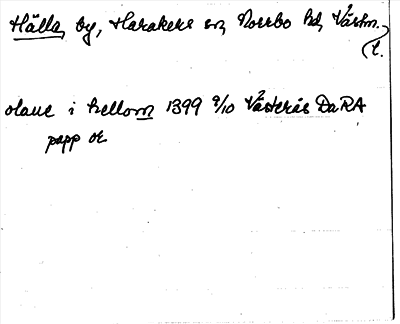 Hälla, by, Harakers sn, Norrbo hd, Västm.
l.
olaue i hellom 1399 9/10 Västerås DaRA
papp or